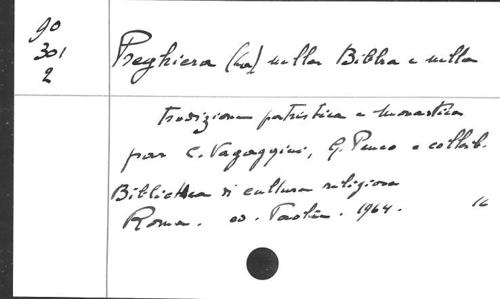 90
301
2
Preghiera (La) nella Bibbia e nella
tradizione patristica e monastica
par C. Vagaggini, G. Penco e collab.
Biblioteca di cultura religiosa
Roma. ed. Paoline. 1964.